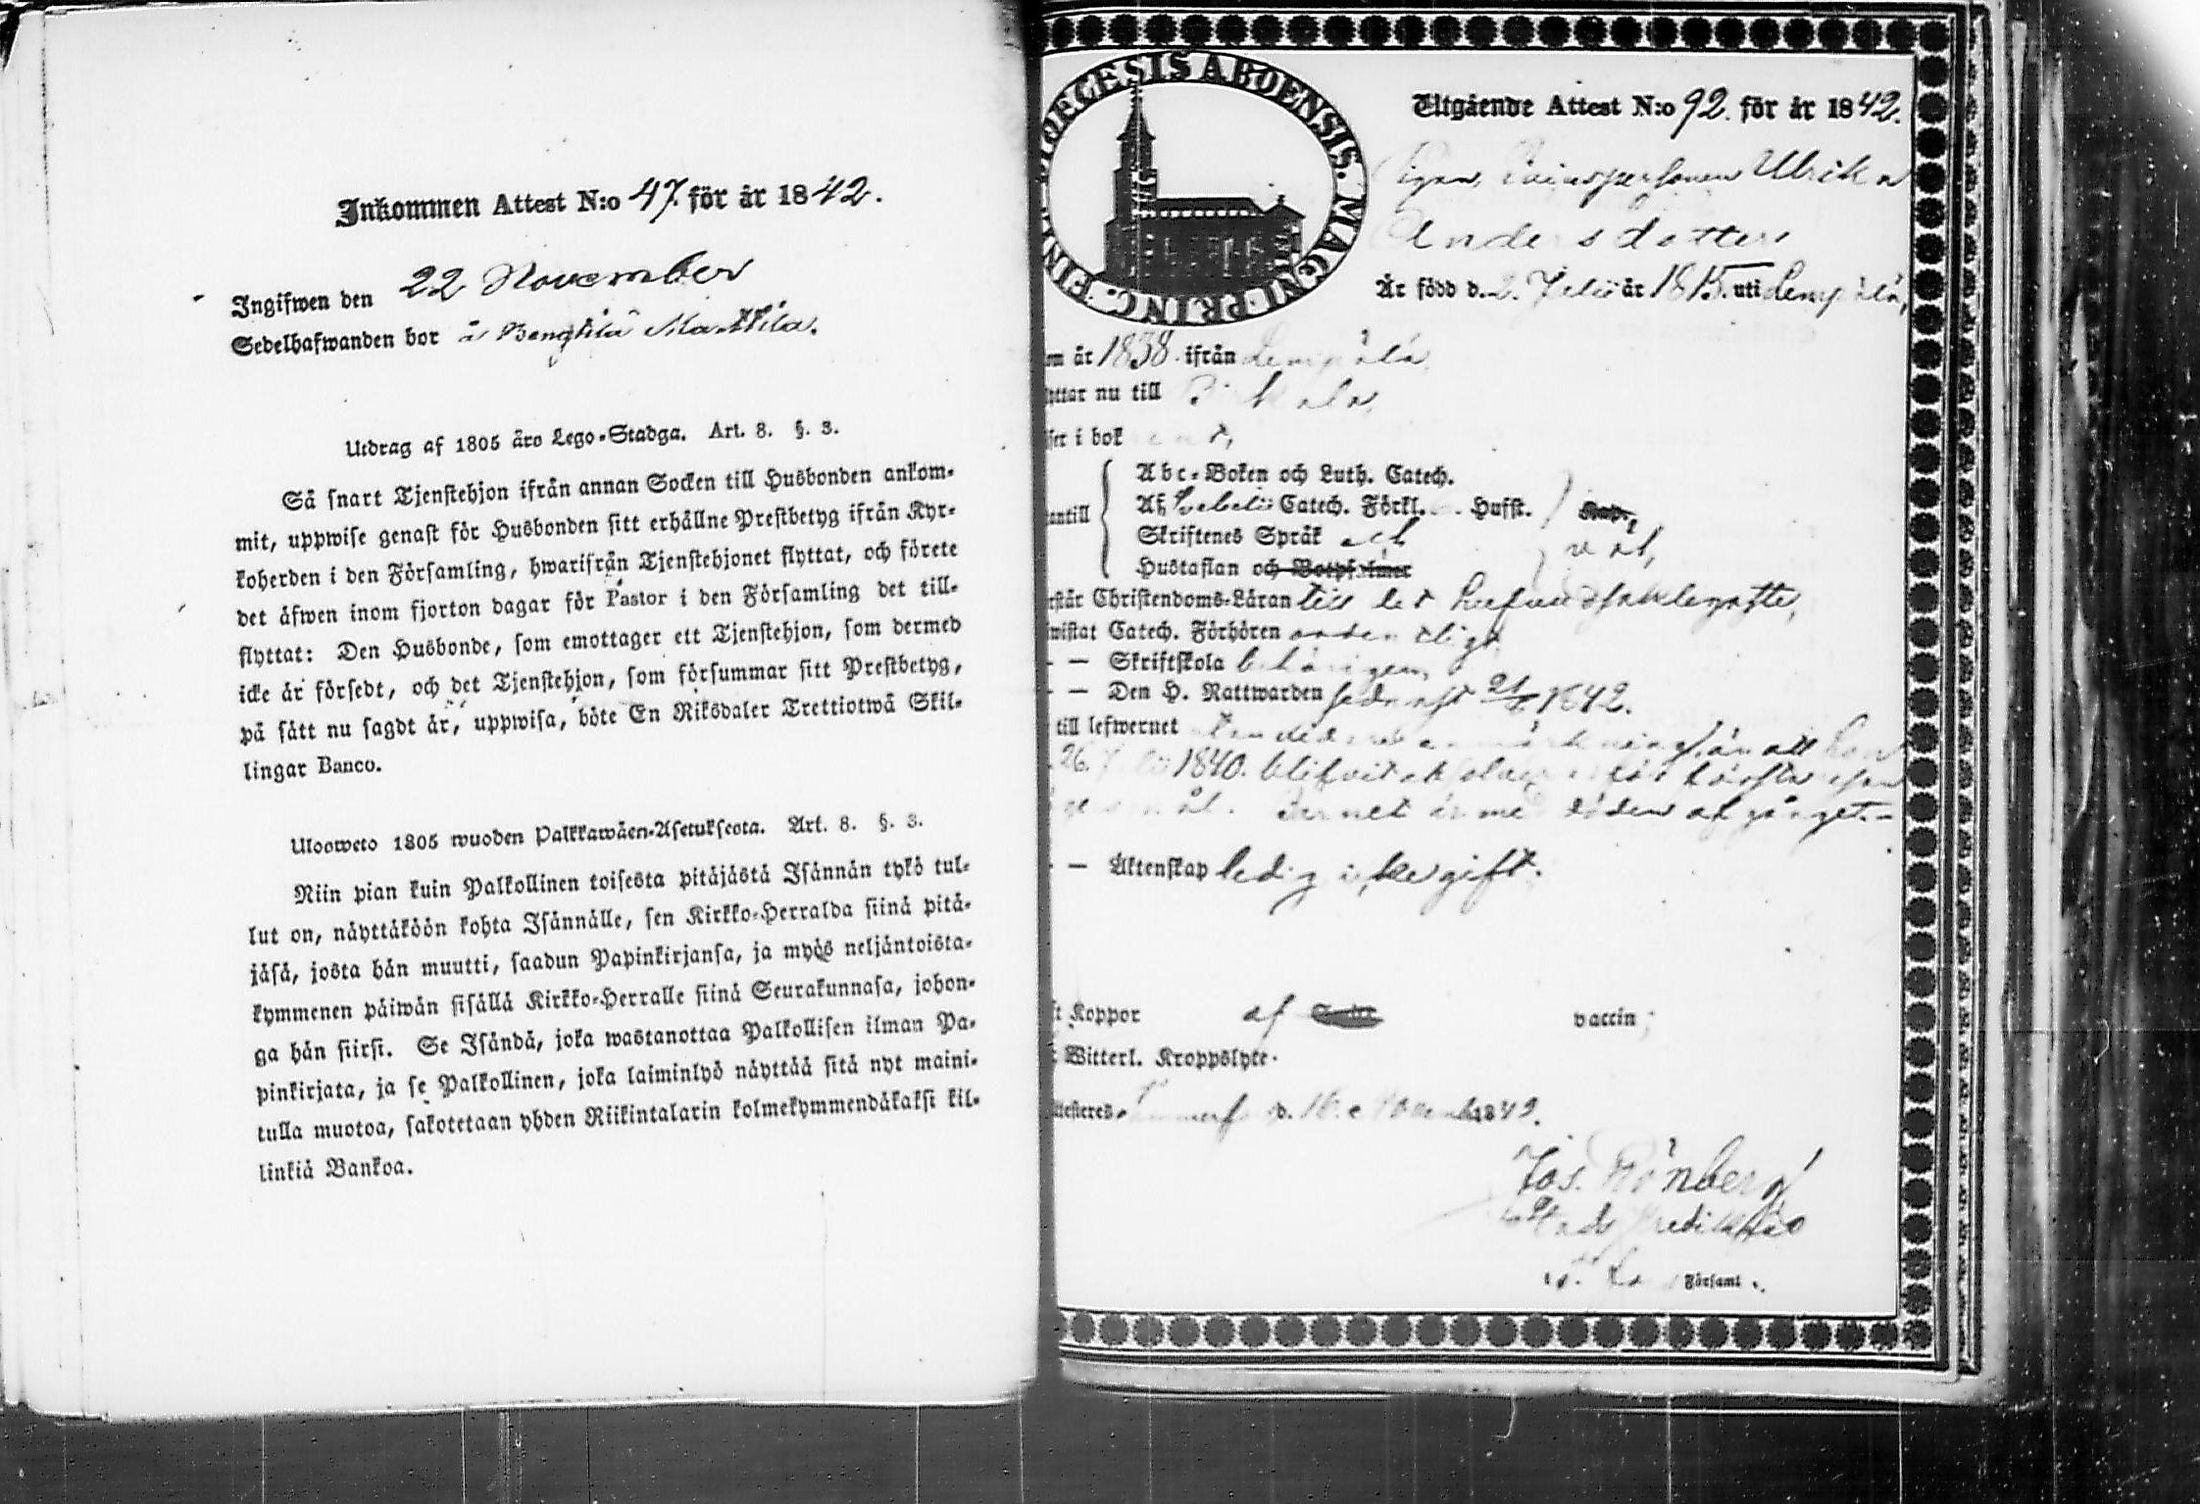 Inkommen Attest N:o 47. för år 1842.
Ingifwen den 22 November
Sedelhafwanden bor å Bengtilä Mattila.
Utdrag af 1805 års Lego-Stadga. Art. 8. §. 3.
Så snart Tjenstehjon ifrån annan Socken till Husbonden ankom-
mit, uppwise genast för Husbonden sitt erhållne Prestbetyg ifrån Kyr-
koherden i den Församling, hwarifrån Tjenstehjonet flyttat, och förete
det äfwen inom fjorton dagar för Pastor i den Församling det till-
flyttat: Den Husbonde, som emottager ett Tjenstehjon, som dermed
icke är försedt, och det Tjenstehjon, som försummar sitt Prestbetyg,
på sätt nu sagdt är, uppwisa, böte En Riksdaler Trettiotwå Skil-
lingar Banco.
Uloosweto 1805 wuoden Palkkawäen-Asetuksesta. Art. 8. §. 3.
Niin pian kuin Palkollinen toisesta pitäjästä Isännän tykö tul-
lut on, näyttäköön kohta Isännälle, sen Kirkko-Herralda siinä pitä-
jäsä, josta hän muutti, saadun Papinkirjansa, ja myös neljäntoista-
kymmenen päiwän sisällä Kirkko-Herralle siinä Seurakunnasa, johon-
ga hän siirsi. Se Isändä, joka wastanottaa Palkollisen ilman Pa-
pinkirjata, ja se Palkollinen, joka laiminlyö näyttää sitä nyt maini-
tulla muotoa, sakotetaan yhden Riikintalarin kolmekymmendäkaksi kil-
linkiä Bankoa.
DIOECESIS ABOENSIS. MAGNI PRINC. FINL
Utgående Attest N:o 92. för år 1842.
Pigan, Ulrika
Andersdotter
Är född d. 2. Julii år 1815. uti Lempälä,
om år 1838. ifrån Lempälä
yttar nu till Birkala,
ser i bok
antill
Abc-Boken och Luth. Catech.
Af Catech. Förkl. Hufst.
Skriftenes Språk och
Hustaflan och Botpsalmer
väl,
rstår Christendoms-Läran till det
wistat Catech. Förhören ordentliga
- — Skriftskola behörigen,
- — Den H. Nattwarden sednast 1842.
till lefwernet utan widare anmärkning, än att hon
26. Julii 1840. blifvit första resan
Barnet är med döden afgånget.-
- — Äktenskap ledig icke gift.
ft Koppor af vaccin;
Witterl. Kroppslyte.
ttesteres Tammerfors d. 16. November 1842.
Jos. Rönberg
Stads Predikant
Församl.